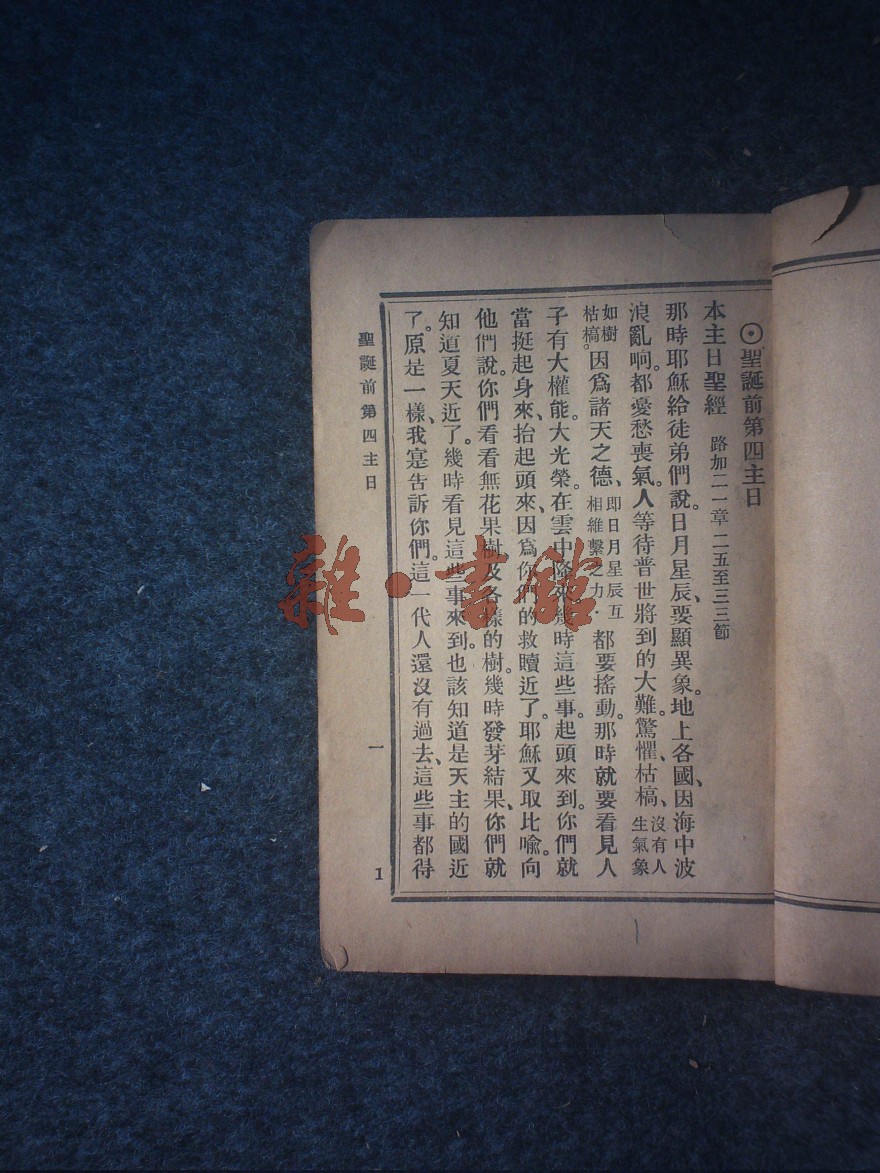 ⊙聖誕前第四主日
本主日聖經 路加二一章二五至三三節
那時耶穌給徒弟們說。日月星辰、要顯異象。地上各國、因海中波
浪亂响。都憂愁喪氣。人等待普世將到的大難。驚懼、枯槁、沒有人生氣象
如樹枯槁。因爲諸天之德、即日月星辰互相維繫之力都要搖動。那時就要看見人
子有大權能。大光榮。在雲中降來。幾時這些事。起頭來到。你們就
當挺起身來、抬起頭來、因爲你們的救贖近了。耶穌又取比喩。向
他們說。你們看看無花果樹及各樣的樹。幾時發芽結果、你們就
知道夏天近了。幾時看見這些事來到。也該知道是天主的國近
了。原是一樣、我寔告訴你們。這一代人還沒有過去、這些事都得
聖誕前第四主日
一
1
雜·書館